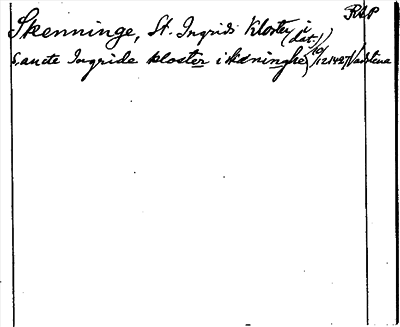 RAP
Skenninge, St. Ingrids Kloster i
(dat.)
Sancte Ingride kloster i skæninghe 10/12 1427 Vadstena